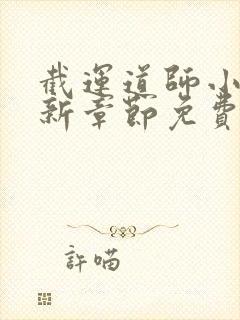 截運道師小
新章節免費
許喵